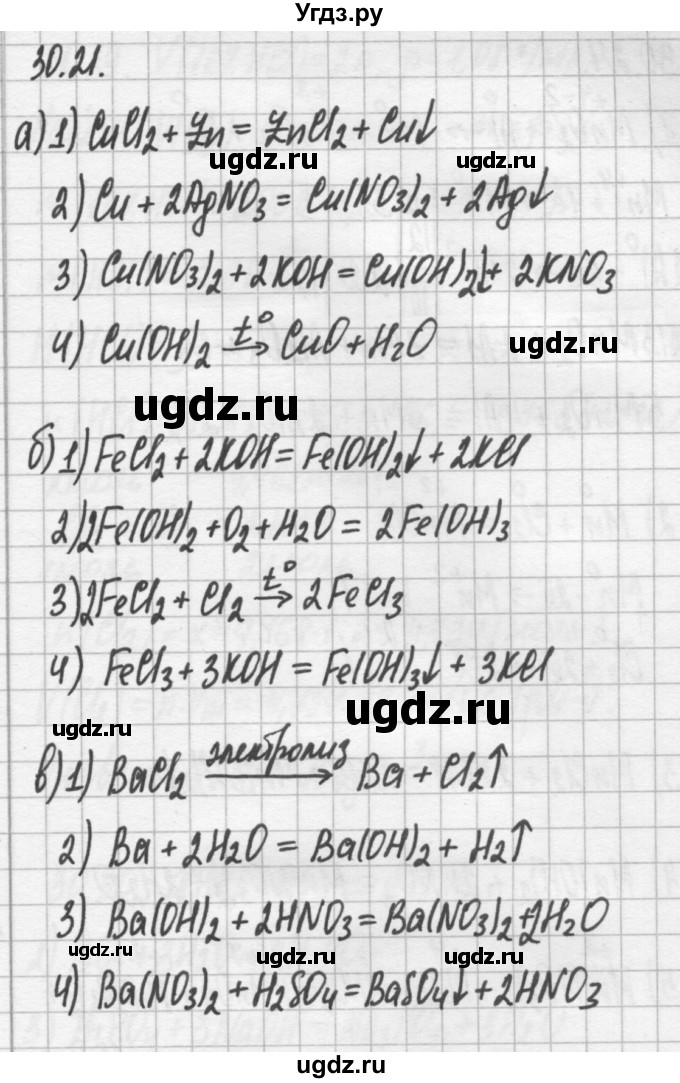 Угдз.ру
30.21.
а) 1) CuCl₂ + Zn = ZnCl₂ + Cu↓
ugdz.ru ugdz.ru
2) Cu + 2AgNO₃ = Cu(NO₃)₂ + 2Ag↓
3) Cu(NO₃)₂ + 2KOH = Cu(OH)₂↓ + 2KNO₃
4) Cu(OH)₂ t° → CuO + H₂O
ugdz.ru
ugdz.ru
б) 1) FeCl₂ + 2KOH = Fe(OH)₂↓ + 2KCl
2) 2Fe(OH)₂ + O₂ + H₂O = 2Fe(OH)₃
3) 2FeCl₂ + Cl₂ t° → 2FeCl₃
4) FeCl₃ + 3KOH = Fe(OH)₃↓ + 3KCl
ugdz.ru
ugdz.ru
в) 1) BaCl₂ электролиз → Ba + Cl₂↑
2) Ba + 2H₂O = Ba(OH)₂ + H₂↑
3) Ba(OH)₂ + 2HNO₃ = Ba(NO₃)₂ + 2H₂O
ugdz.ru ugdz.ru ugdz.ru
4) Ba(NO₃)₂ + H₂SO₄ = BaSO₄↓ + 2HNO₃
ugdz.ru